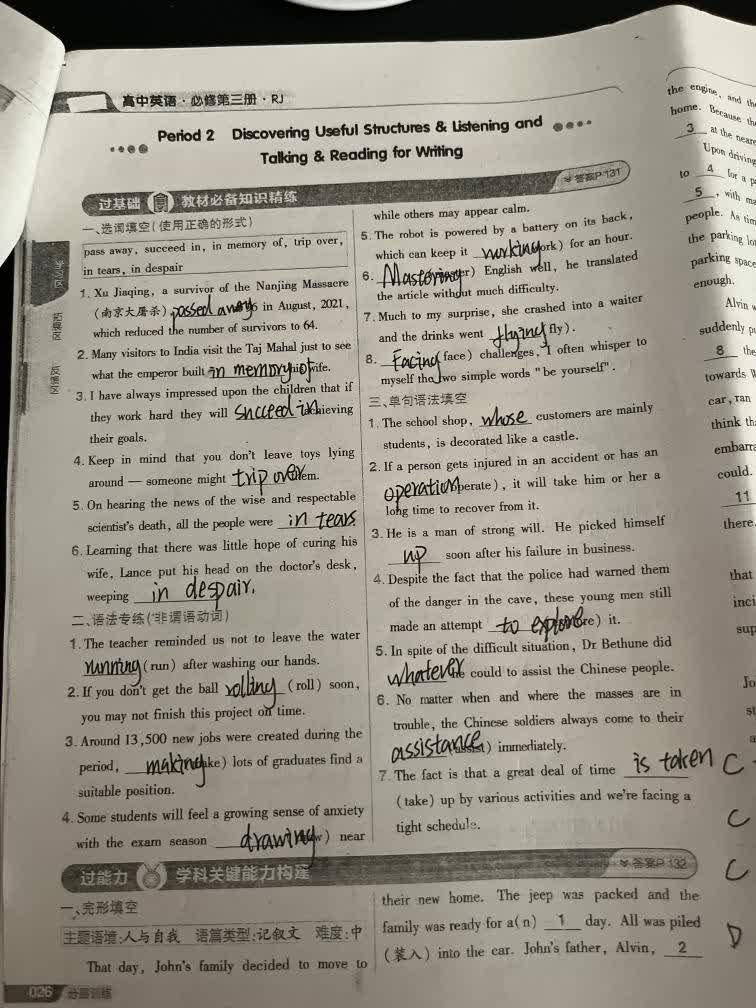 高中英语·必修第三册·RJ
Period 2 Discovering Useful Structures & Listening and
Talking & Reading for Writing
过基础 教材必备知识精练
答案P131
一、选词填空(使用正确的形式)
pass away, succeed in, in memory of, trip over,
in tears, in despair
1. Xu Jiaqing, a survivor of the Nanjing Massacre
(南京大屠杀) passed away in August, 2021,
which reduced the number of survivors to 64.
2. Many visitors to India visit the Taj Mahal just to see
what the emperor built in memory of wife.
3. I have always impressed upon the children that if
they work hard they will succeed in achieving
their goals.
4. Keep in mind that you don't leave toys lying
around — someone might trip over them.
5. On hearing the news of the wise and respectable
scientist's death, all the people were in tears
6. Learning that there was little hope of curing his
wife, Lance put his head on the doctor's desk,
weeping in despair.
二、语法专练(非谓语动词)
1. The teacher reminded us not to leave the water
running (run) after washing our hands.
2. If you don't get the ball rolling (roll) soon,
you may not finish this project on time.
3. Around 13,500 new jobs were created during the
period, making ke) lots of graduates find a
suitable position.
4. Some students will feel a growing sense of anxiety
with the exam season drawing w) near
while others may appear calm.
5. The robot is powered by a battery on its back,
which can keep it working ork) for an hour.
6. Mastering er) English well, he translated
the article without much difficulty.
7. Much to my surprise, she crashed into a waiter
and the drinks went flying fly).
8. Facing face) challenges, I often whisper to
myself the two simple words "be yourself".
三、单句语法填空
1. The school shop, whose customers are mainly
students, is decorated like a castle.
2. If a person gets injured in an accident or has an
operation perate), it will take him or her a
long time to recover from it.
3. He is a man of strong will. He picked himself
up soon after his failure in business.
4. Despite the fact that the police had warned them
of the danger in the cave, these young men still
made an attempt to explore re) it.
5. In spite of the difficult situation, Dr. Bethune did
whatever he could to assist the Chinese people.
6. No matter when and where the masses are in
trouble, the Chinese soldiers always come to their
assistance st) immediately.
7. The fact is that a great deal of time is taken
(take) up by various activities and we're facing a
tight schedule.
过能力 学科关键能力构建
答案P132
一、完形填空
主题语境:人与自我 语篇类型:记叙文 难度:中
That day, John's family decided to move to
their new home. The jeep was packed and the
family was ready for a(n) 1 day. All was piled
(装入) into the car. John's father, Alvin, 2
026 分层训练
拓展区
反馈区
the engine, and th
home. Because the
3 at the neare
Upon driving
to 4 for a p
5 , with ma
people. As tim
the parking lo
parking space
enough.
Alvin w
suddenly p
8 the
towards W
car, ran
think th
embarra
could.
11
there.
that
inci
sup
Jo
st
a
C
C
C
D